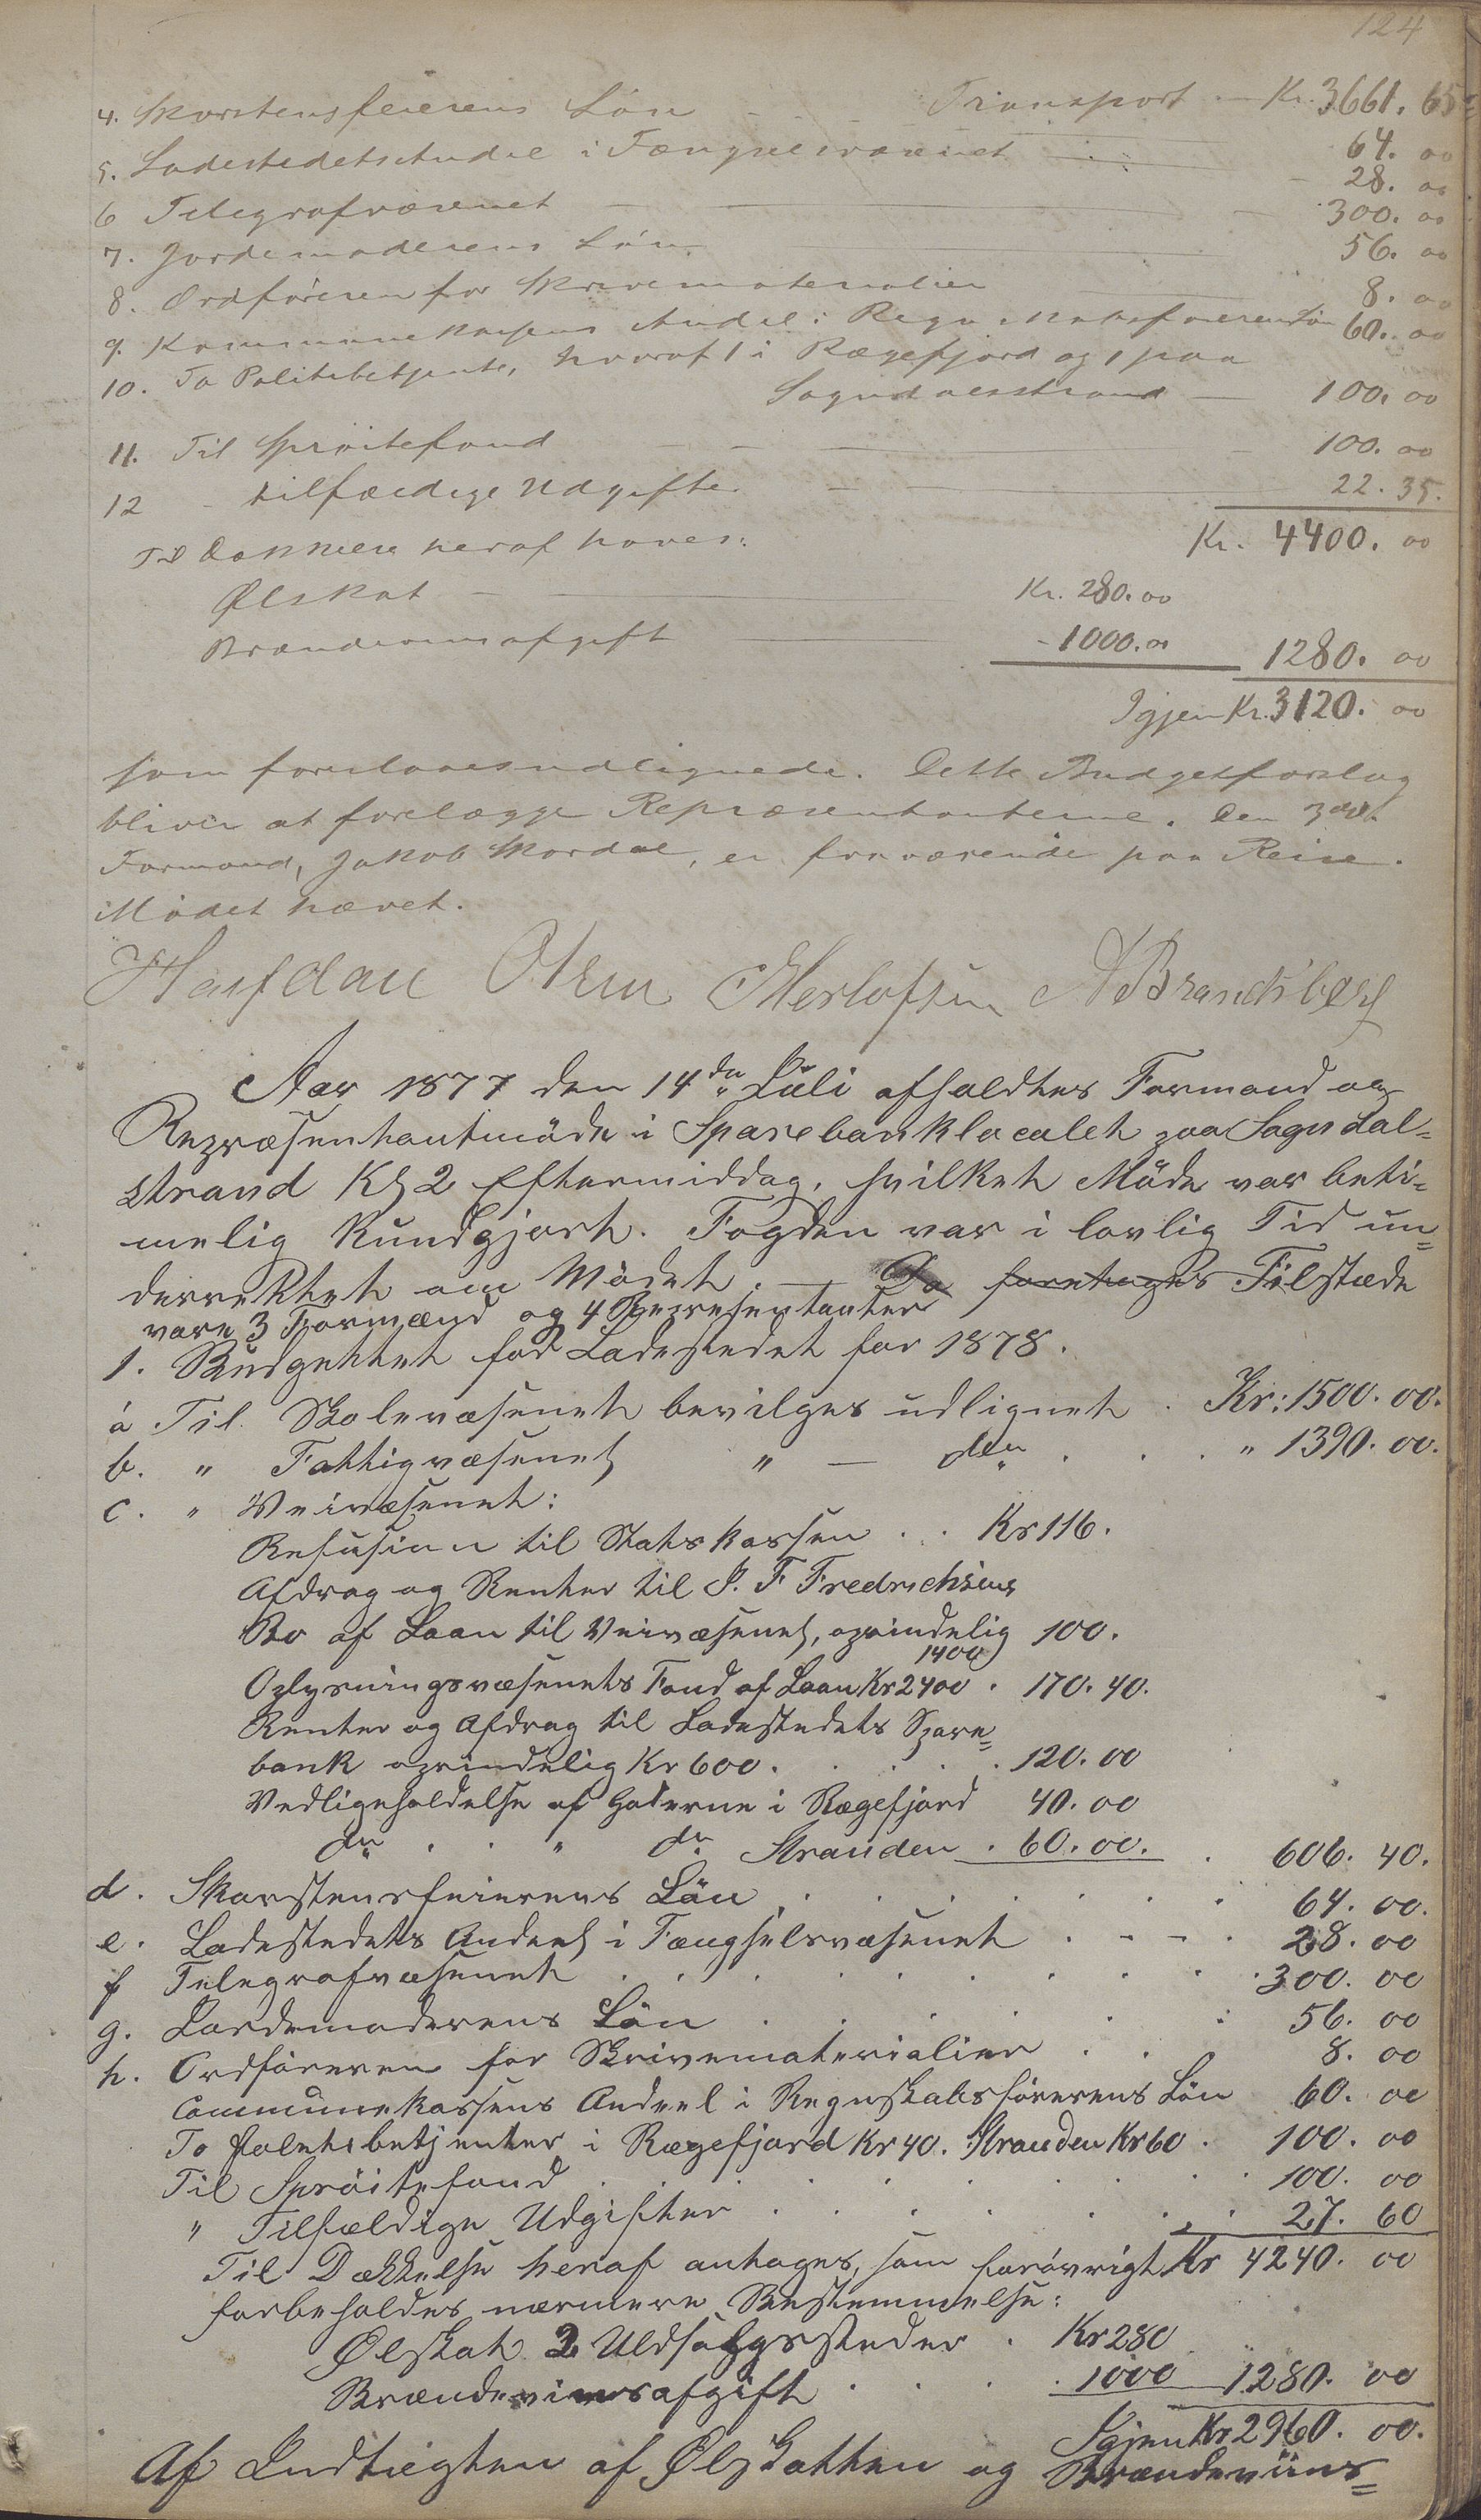 124
Transport - Kr. 3661. 65
4. Skorstensfeierens Løn - - - 64. 00
5. Ladestedets Andel i Fængselsvæsenet - 28. 00
6 Telegrafvæsenet - 300. 00
7. Jordemoderens Løn - 56. 00
8. Ordføreren for Skrivematerialier 8. 00
9. Kommunekassens Andel i Regnskabsførerens Løn 60. 00
10. To Politibetjente, hvoraf 1 i Rægefjord og 1 paa
Sogndalsstrand - 100. 00
11. Til Sprøitefond - - - 100. 00
12 - tilfældige Udgifter. - 22. 35.
Kr. 4400. 00
Til Dækkelse heraf haves:
Ølskat - Kr. 280. 00
Brændevinsafgift - 1000. 00 1280. 00
Igjen Kr. 3120. 00
som foreslaaes udlignede. Dette Budgetforslag
bliver at forelægge Repræsentanterne. Den 3die
Formand, Jakob Skordal, er fraværende paa Reise.
Mødet hævet.
Halfdan Olsen Herlofsen A Brandsberg
Aar 1877 den 14de Juli afholdtes Formand og
Repræsentantmøde i Sparebanklocalet paa Sogndal=
strand Kl 2 Eftermiddag, hvilket Møde var beti=
melig kundgjort. Fogden var i lovlig Tid un=
derrettet om Mødet. — Da foretages Tilstæde
vare 3 Formænd og 4 Repræsentanter
1. Budgettet for Ladestedet for 1878.
a Til Skolevæsenet bevilges udlignet . Kr: 1500. 00.
b. " Fattigvæsenet " — do . . . " 1390. 00.
c. " Veivæsenet:
Refusion til Statskassen . . Kr 116.
Afdrag og Renter til J. F Fredrichsens
Bo af Laan til Veivæsenet, oprindelig 100.
1400
Oplysningsvæsenets Fond af Laan Kr 2400 . 170. 40.
Renter og Afdrag til Ladestedets Spare=
bank oprindelig Kr 600. . . . . 120. 00
Vedligeholdelse af Gaderne i Rægefjord 40. 00
do . . " do Stranden . 60. 00. . 606. 40.
d. Skorstensfeierens Løn . . . . . . 64. 00.
e. Ladestedets Andeel i Fængselsvæsenet . - - . 28. 00
f Telegrafvæsenet . . . . . . . . 300. 00
g. Jordemoderens Løn . . . . : 56. 00
h. Ordføreren for Skrivematerialier . . 8. 00
Communekassens Andeel i Regnskabsførerens Løn 60. 00
To Politibetjenter i Rægefjord Kr 40. Stranden Kr 60 . 100. 00
Til Sprøitefond . . . . . . . . 100. 00
" Tilfældige Udgifter . . . . . . 27. 60
Til Dækkelse heraf antages, som forøvrigt Kr 4240. 00
forbeholdes nærmere Bestemmelse:
Ølskat 2 Uldsalgssteder . Kr 280
Brændeviinsafgift . . . . 1000 1280. 00
Igjen Kr 2960. 00.
Af Indtægten af Ølskatten og Brændeviins=